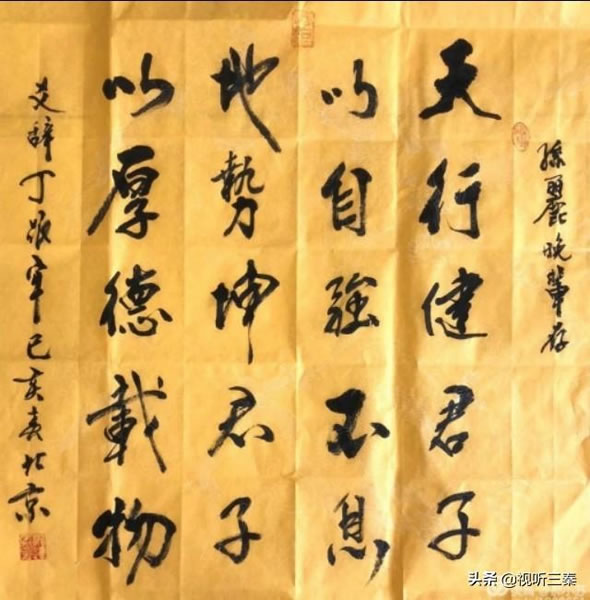 孫麗晚輩存
天行健君子
以自強不息
地勢坤君子
以厚德載物
爻辞丁振宇己亥春北京
头条 @视听三秦